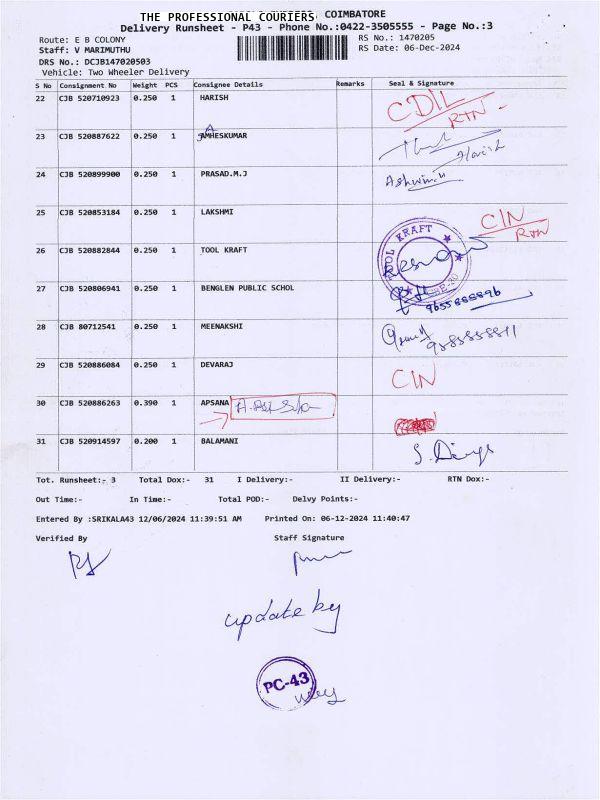 THE PROFESSIONAL COURIERS COIMBATORE
Delivery Runsheet - P43 - Phone No.:0422-3505555 - Page No.:3
Route: E B COLONY RS No.: 1470205
Staff: V MARIMUTHU RS Date: 06-Dec-2024
DRS No.: DCJB147020503
Vehicle: Two Wheeler Delivery
S No Consignment No Weight PCS Consignee Details Remarks Seal & Signature
22 CJB 520710923 0.250 1 HARISH CDIL RTN
23 CJB 520887622 0.250 1 MHESKUMAR Harish
24 CJB 520899900 0.250 1 PRASAD.M.J
25 CJB 520853184 0.250 1 LAKSHMI CIN RTN
26 CJB 520882844 0.250 1 TOOL KRAFT TOOL KRAFT
27 CJB 520806941 0.250 1 BENGLEN PUBLIC SCHOL
28 CJB 80712541 0.250 1 MEENAKSHI
29 CJB 520886084 0.250 1 DEVARAJ CIN
30 CJB 520886263 0.390 1 APSANA
31 CJB 520914597 0.200 1 BALAMANI
Tot. Runsheet:- 3 Total Dox:- 31 I Delivery:- II Delivery:- RTN Dox:-
Out Time:- In Time:- Total POD:- Delvy Points:-
Entered By :SRIKALA43 12/06/2024 11:39:51 AM Printed On: 06-12-2024 11:40:47
Verified By Staff Signature
update by
PC-43